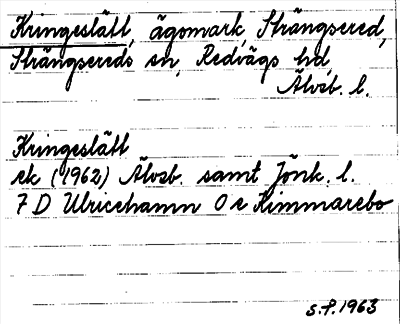 Kringeslätt, ägomark, Strängsered,
Strängsereds sn, Redvägs hd,
Älvsb. l.
Kringeslätt
ek (1962) Älvsb. samt Jönk. l.
7 D Ulricehamn 0 e Kimmarebo
S.P. 1963